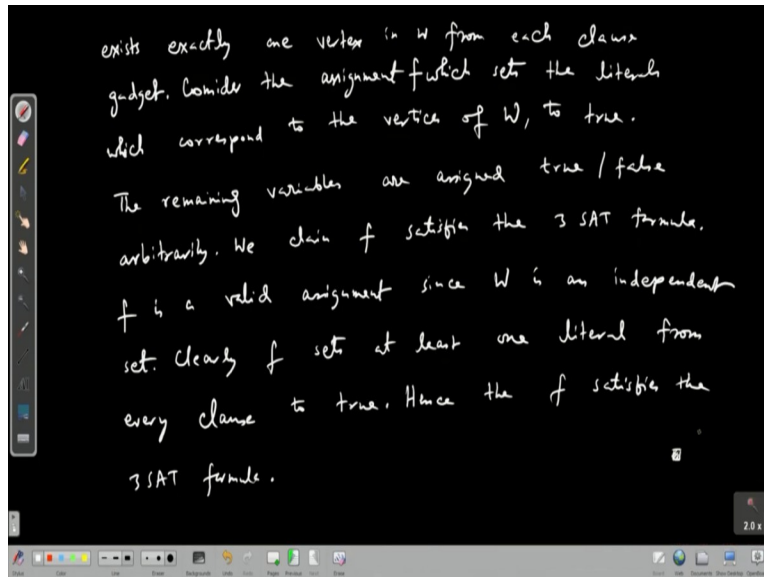 exists exactly one vertex in W from each clause
gadget. Consider the assignment f which sets the literals
which correspond to the vertices of W, to true.
The remaining variables are assigned true / false
arbitrarily. We claim f satisfies the 3 SAT formula.
f is a valid assignment since W is an independent
set. Clearly f sets at least one literal from
every clause to true. Hence the f satisfies the
3 SAT formula.
2.0 x